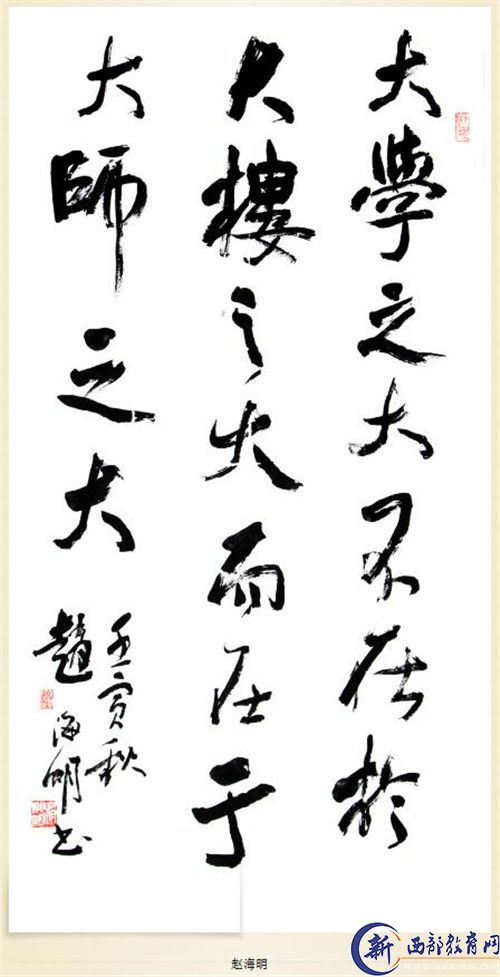 大學之大不在於
大樓之大而在于
大師之大
壬寅秋
趙海明书
赵海明
新西部教育网